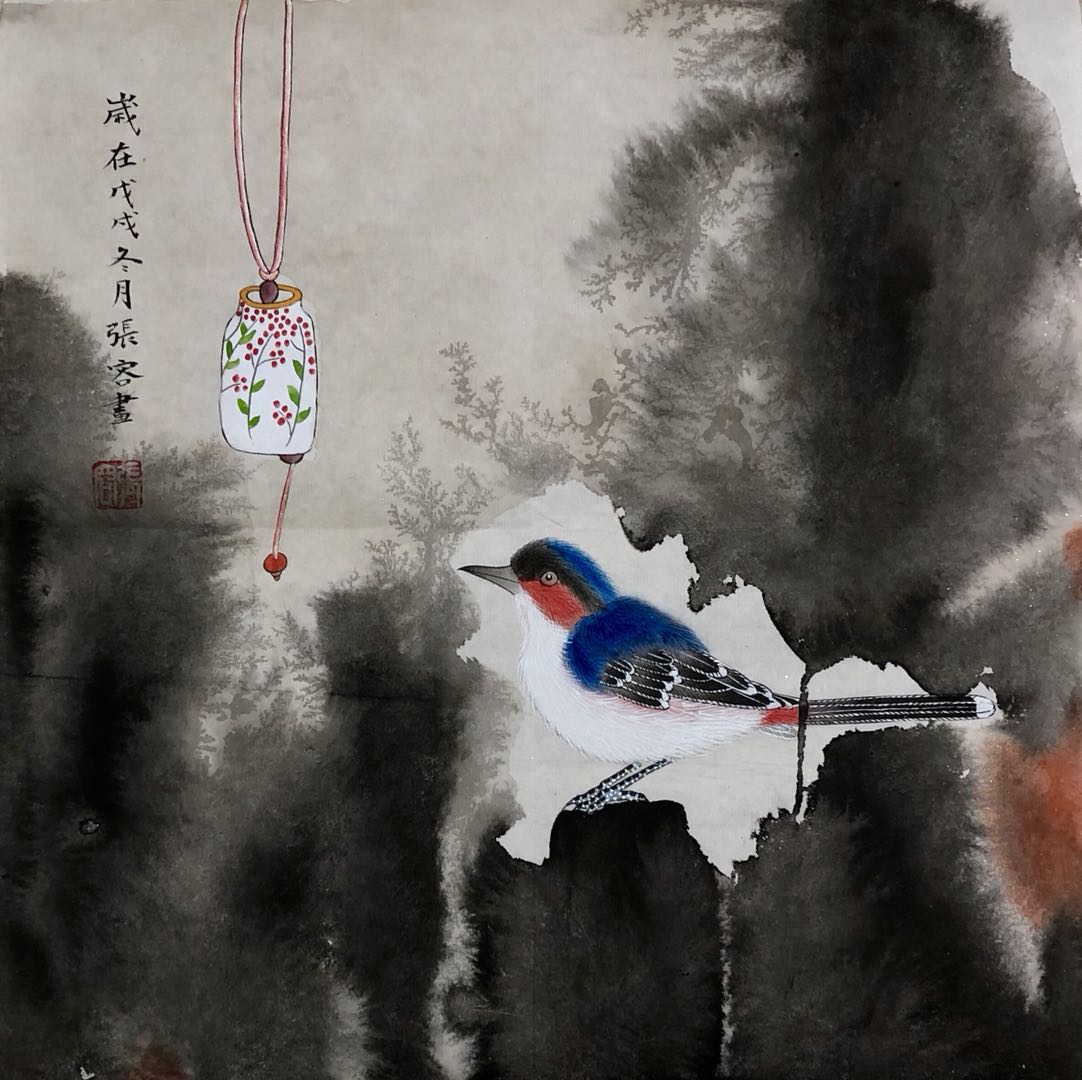 歳在戊戌冬月張容畫